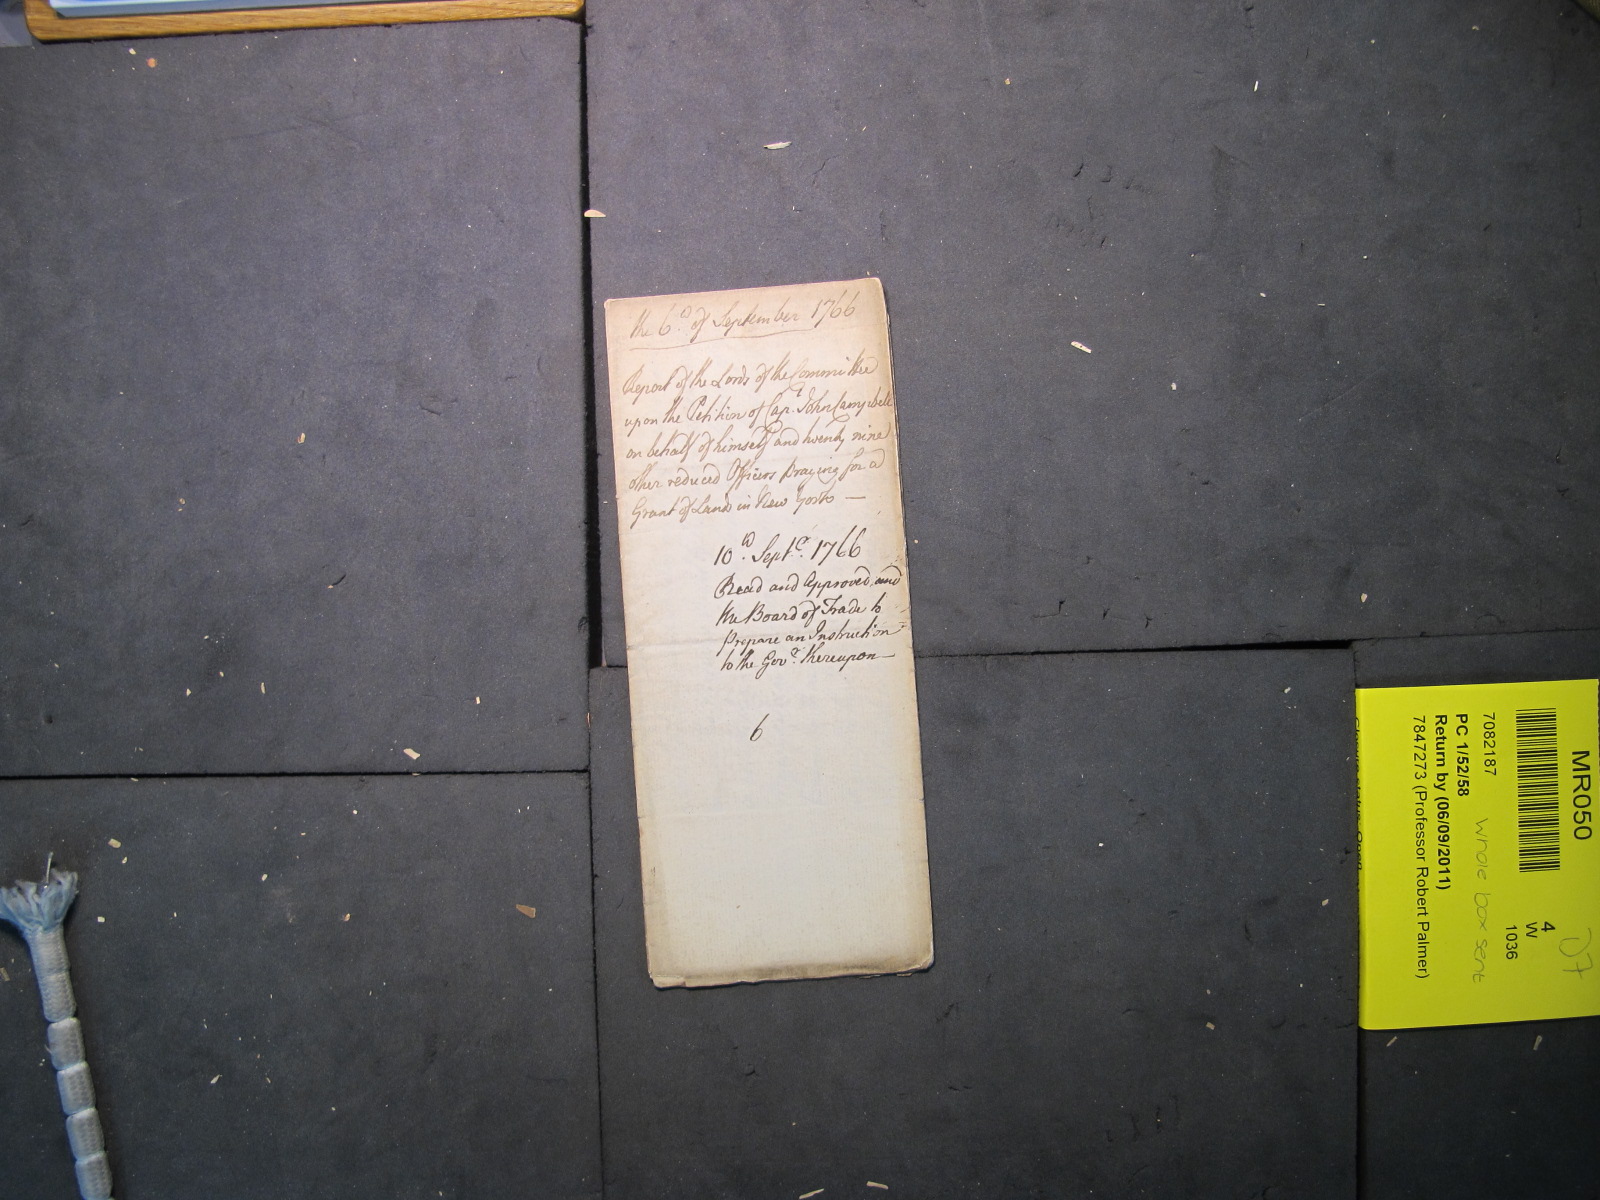 the 6.th of September 1766
Report of the Lords of the Committee
upon the Petition of Cap.t John Campbell
on behalf of himself and twenty nine
other reduced Officers praying for a
Grant of Lands in New York —
10.th Sept.r 1766
Read and Approved, and
the Board of Trade to
prepare an Instruction
to the Gov.r thereupon —
6
MR050
4
W
1036
7082187
whole box sent
PC 1/52/58
Return by (06/09/2011)
7847273 (Professor Robert Palmer)